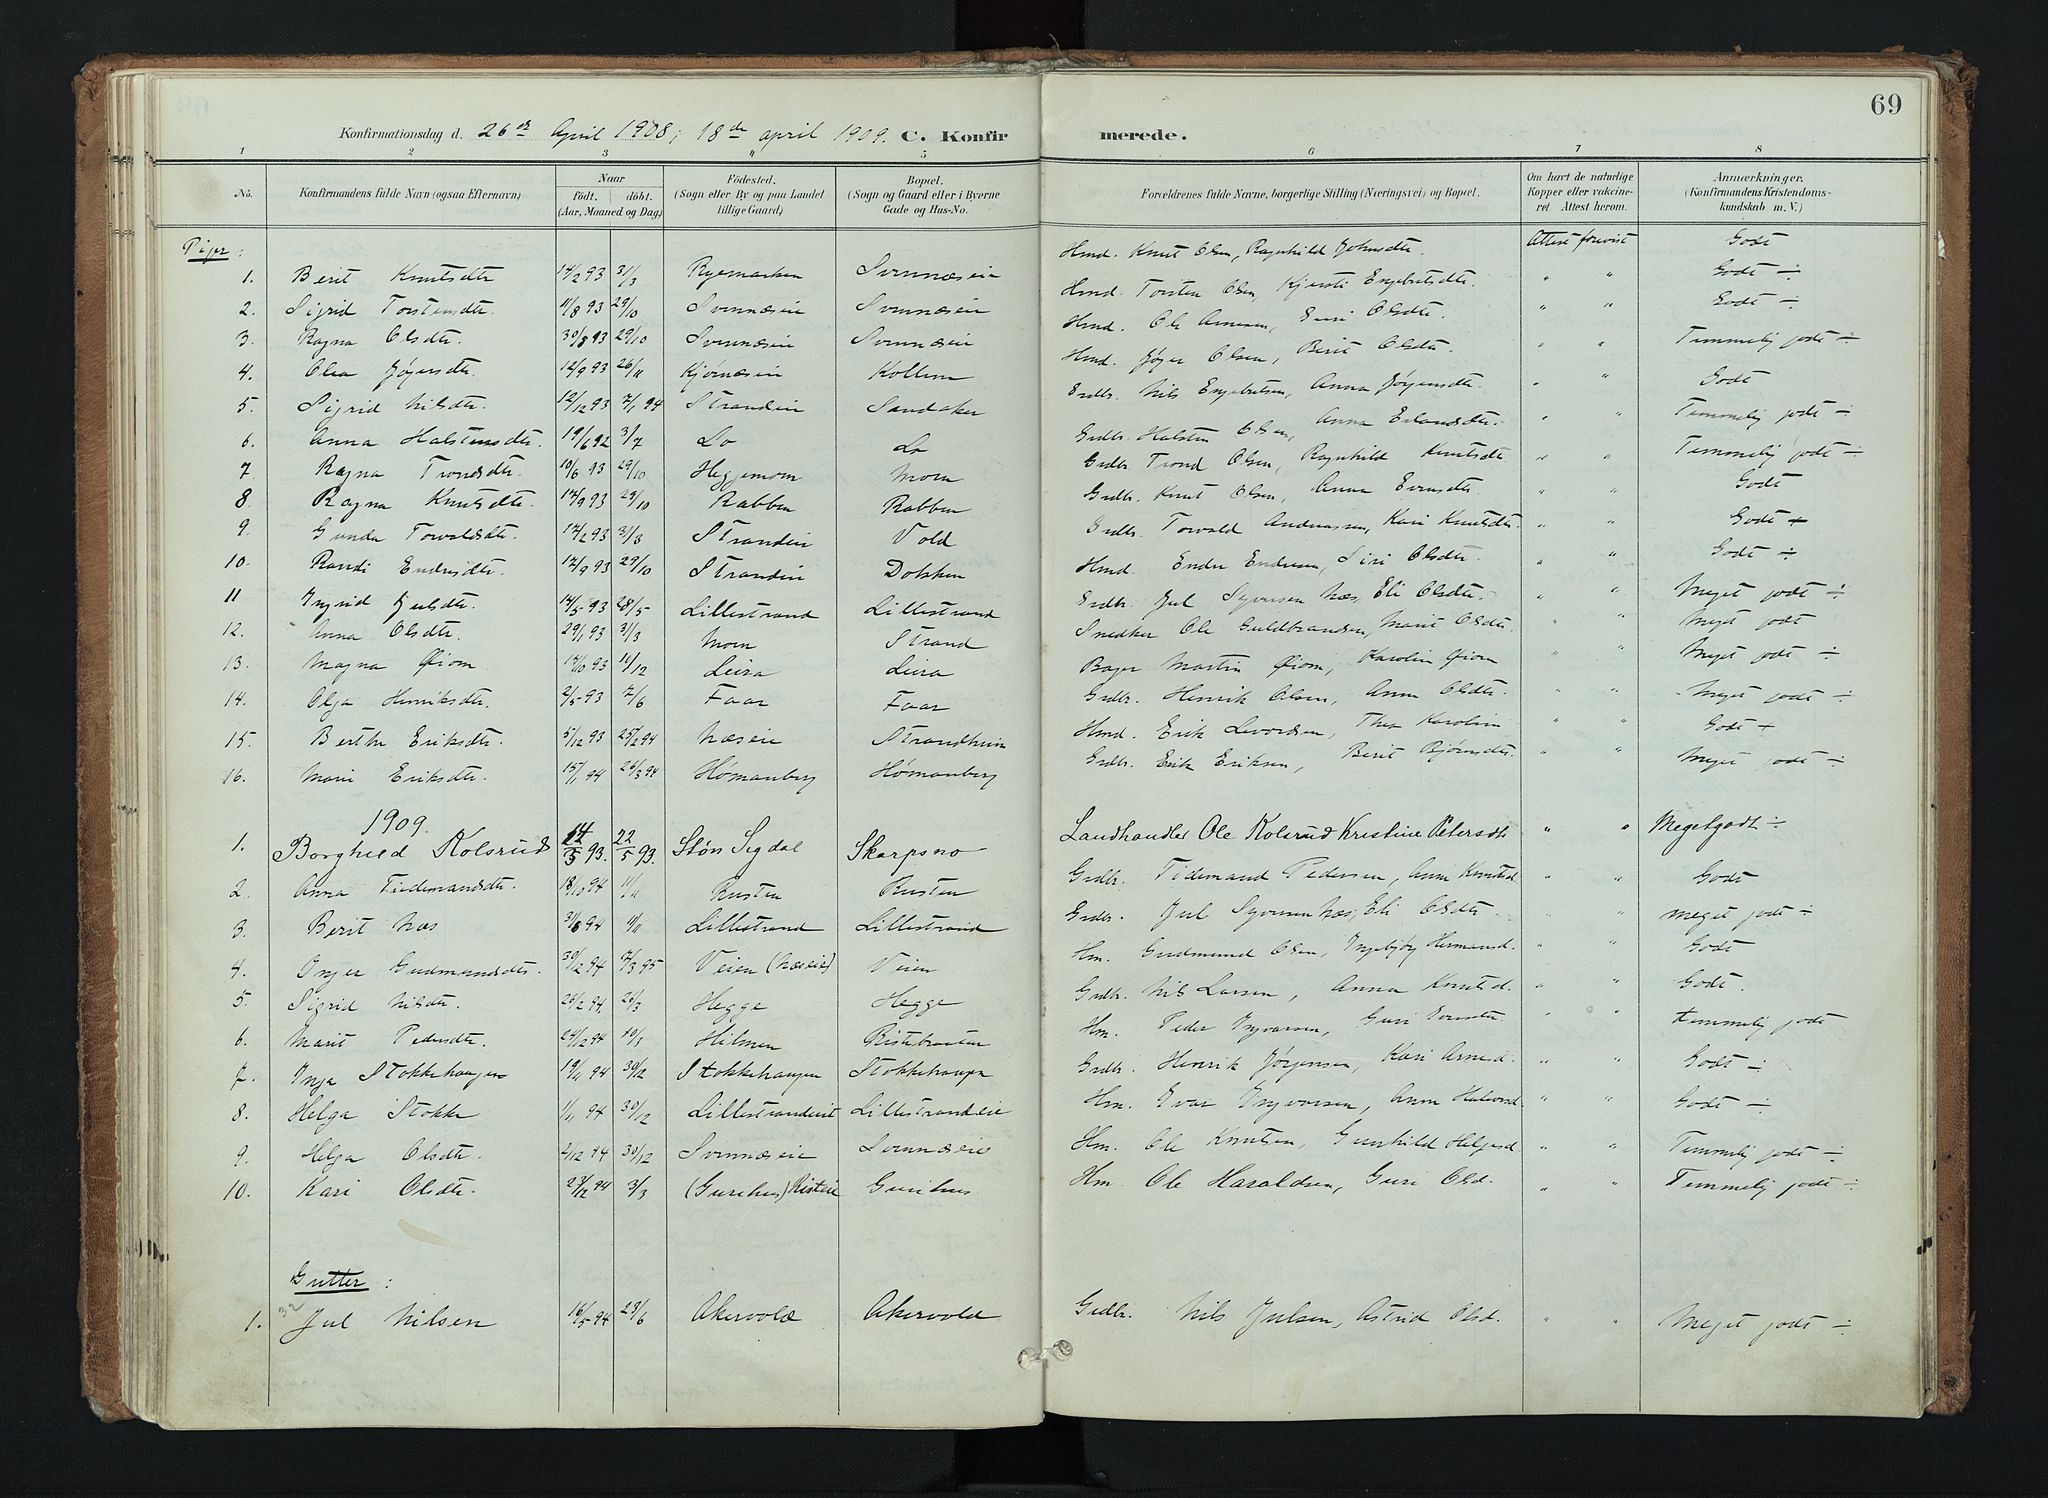 69
Konfirmationsdag d. 26de April 1908; 18de april 1909. C. Konfirmerede.
1 2 3 " 4 5 6 7 8
No. Konfirmandens fulde Navn (ogsaa Efternavn) Naar födt. döbt. (Aar, Maaned og Dag) Födested. (Sogn eller By og paa Landet tillige Gaard) Bopæl. (Sogn og Gaard eller i Byerne Gade og Hus-No. Forældrenes fulde Navne, borgerlige Stilling (Næringsvei) og Bopæl. Om havt de naturlige Kopper eller vakcineret. Attest herom. Anmærkninger. (Konfirmandens Kristendomskundskab m. V.)
Piger:
1. Berit Knutsdtr 14/2 93 31/3 Ryemarken Svennæseie Hmd. Knut Olsen, Ragnhild Johnsdtr. Attest forevist Godt
2. Sigrid Torstensdtr. 11/8 93 29/10 Svennæseie Svennæseie Hmd. Torsten Olsen, Kjersti Engebretsdtr. " " Godt ÷
3. Ragna Olsdtr. 30/8 93 29/10 Svennæseie Svennæseie Hmd. Ole Arnesen, Guri Olsdtr. " " Godt ÷
4. Olea Jøgersdtr. 12/9 93 26/11 Kjørnæseie Kollern Hmd. Jøger Olsen, Berit Olsdtr. " " Temmelig godt ÷
5. Sigrid Nilsdtr. 12/12 93 7/1 94 Strandeie Sandaker Grdbr. Nils Engebretsen, Anna Jørgensdtr. " " Godt
6. Anna Halstensdtr. 19/6 92 3/7 Lo Lo Grdbr. Halsten Olsen, Anna Erlandsdtr. " " Temmelig godt ÷
7. Ragna Trondsdtr. 10/6 93 29/10 Heggemoen Moen Grdbr. Trond Olsen, Ragnhild Knutsdtr " " Temmelig godt ÷
8 Ragna Knutsdtr. 14/9 93 29/10 Rabben Rabben Grdbr. Knut Olsen, Anna Evensdtr. " " Godt
9. Gunda Torvaldsdtr. 17/2 93 31/3 Strandeie Vold Grdbr. Torvald Andreassen, Kari Knutsdtr. " " Godt +
10. Randi Endresdtr. 12/9 93 29/10 Strandeie Dokken Hmd. Endre Endresen, Siri Olsdtr. " " Godt ÷
11 Ingrid Julsdtr. 14/5 93 28/5 Lillestrand Lillestrand Grdbr. Jul Syversen Næs, Eli Olsdtr. " " Meget godt ÷
12. Anna Olsdtr. 29/1 93 31/3 Moen Strand Snedker Ole Guldbrandsen, Marit Olsdtr. " " Meget godt
13. Magna Øiom 14/10 93 11/12 Leira Leira Bager Martin Øiom, Karolin Øiom " " Meget godt ÷
14. Olga Henriksdtr. 2/5 93 7/6 Faar Faar Grdbr. Henrik Olsen, Anne Olsdtr. " " Meget godt ÷
15. Berthe Eriksdtr. 5/12 93 25/2 94 Næseie Strandheim Hmd. Erik Levordsen, Thea Karolin " " Godt +
16. Marie Eriksdtr. 15/1 94 26/3 94 Hømanberg Hømanberg Grdbr. Erik Eriksen, Berit Bjørnsdtr. " " Meget godt ÷
1909.
1. Borghild Kolsrud 14/5 93. 22/5 93. Støn Sigdal Skarpsno Landhandler Ole Kolsrud Kristine Petersdtr " " Megetgodt ÷
2. Anna Tidemandsdtr. 18/10 94 11/11 Rusten Rusten Grdbr. Tidemand Pedersen, Anne Knutsd. " " Godt
3. Berit Næs 31/8 94 11/11 Lillestrand Lillestrand Grdbr. Jul Syversen Næs, Eli Olsdtr. " " meget godt ÷
4. Inger Gudmundsdtr. 30/12 94 7/3 95 Veien (Næseie) Veien Hm. Gudmund Olsen, Ingebjørg Hermansd. " " Godt
5. Sigrid Nilsdtr. 26/2 94. 26/3 Hegge Hegge Grdbr. Nils Larsen, Anna Knutsd. " " Godt.
6. Marit Pedersdtr. 24/12 94 10/3 Hilmen Ristebraaten Hm. Peder Ingvarsen, Guri Iversdtr. " " temmelig godt
7. Inga Stokkehaugen 19/11 94 30/12 Stokkehaugen Stokkehaugen Grdbr. Henrik Jørgensen, Kari Arnesd. " " Godt ÷
8. Helga Stokke 1/11 94 30/12 Lillestrandeie Lillestrandeie Hm. Ivar Ingvarsen, Anne Halvorsd. " " Godt ÷
9. Helga Olsdtr. 2/12 94 30/12 Svennæseie Svennæseie Hm. Ole Knutsen, Gunhild Helgesd. " " Temmelig godt ÷
10. Kari Olsdtr. 23/12 94 3/3 (Gurihus) Risteie Gurihus. Hm. Ole Haraldsen, Guri Olsd. " " Temmelig godt ÷
Gutter:
32
1. Jul Nilsen 16/5 94 23/6 Akervold Akervold Grdbr. Nils Julsen, Astrid Olsd. " " Meget godt ÷